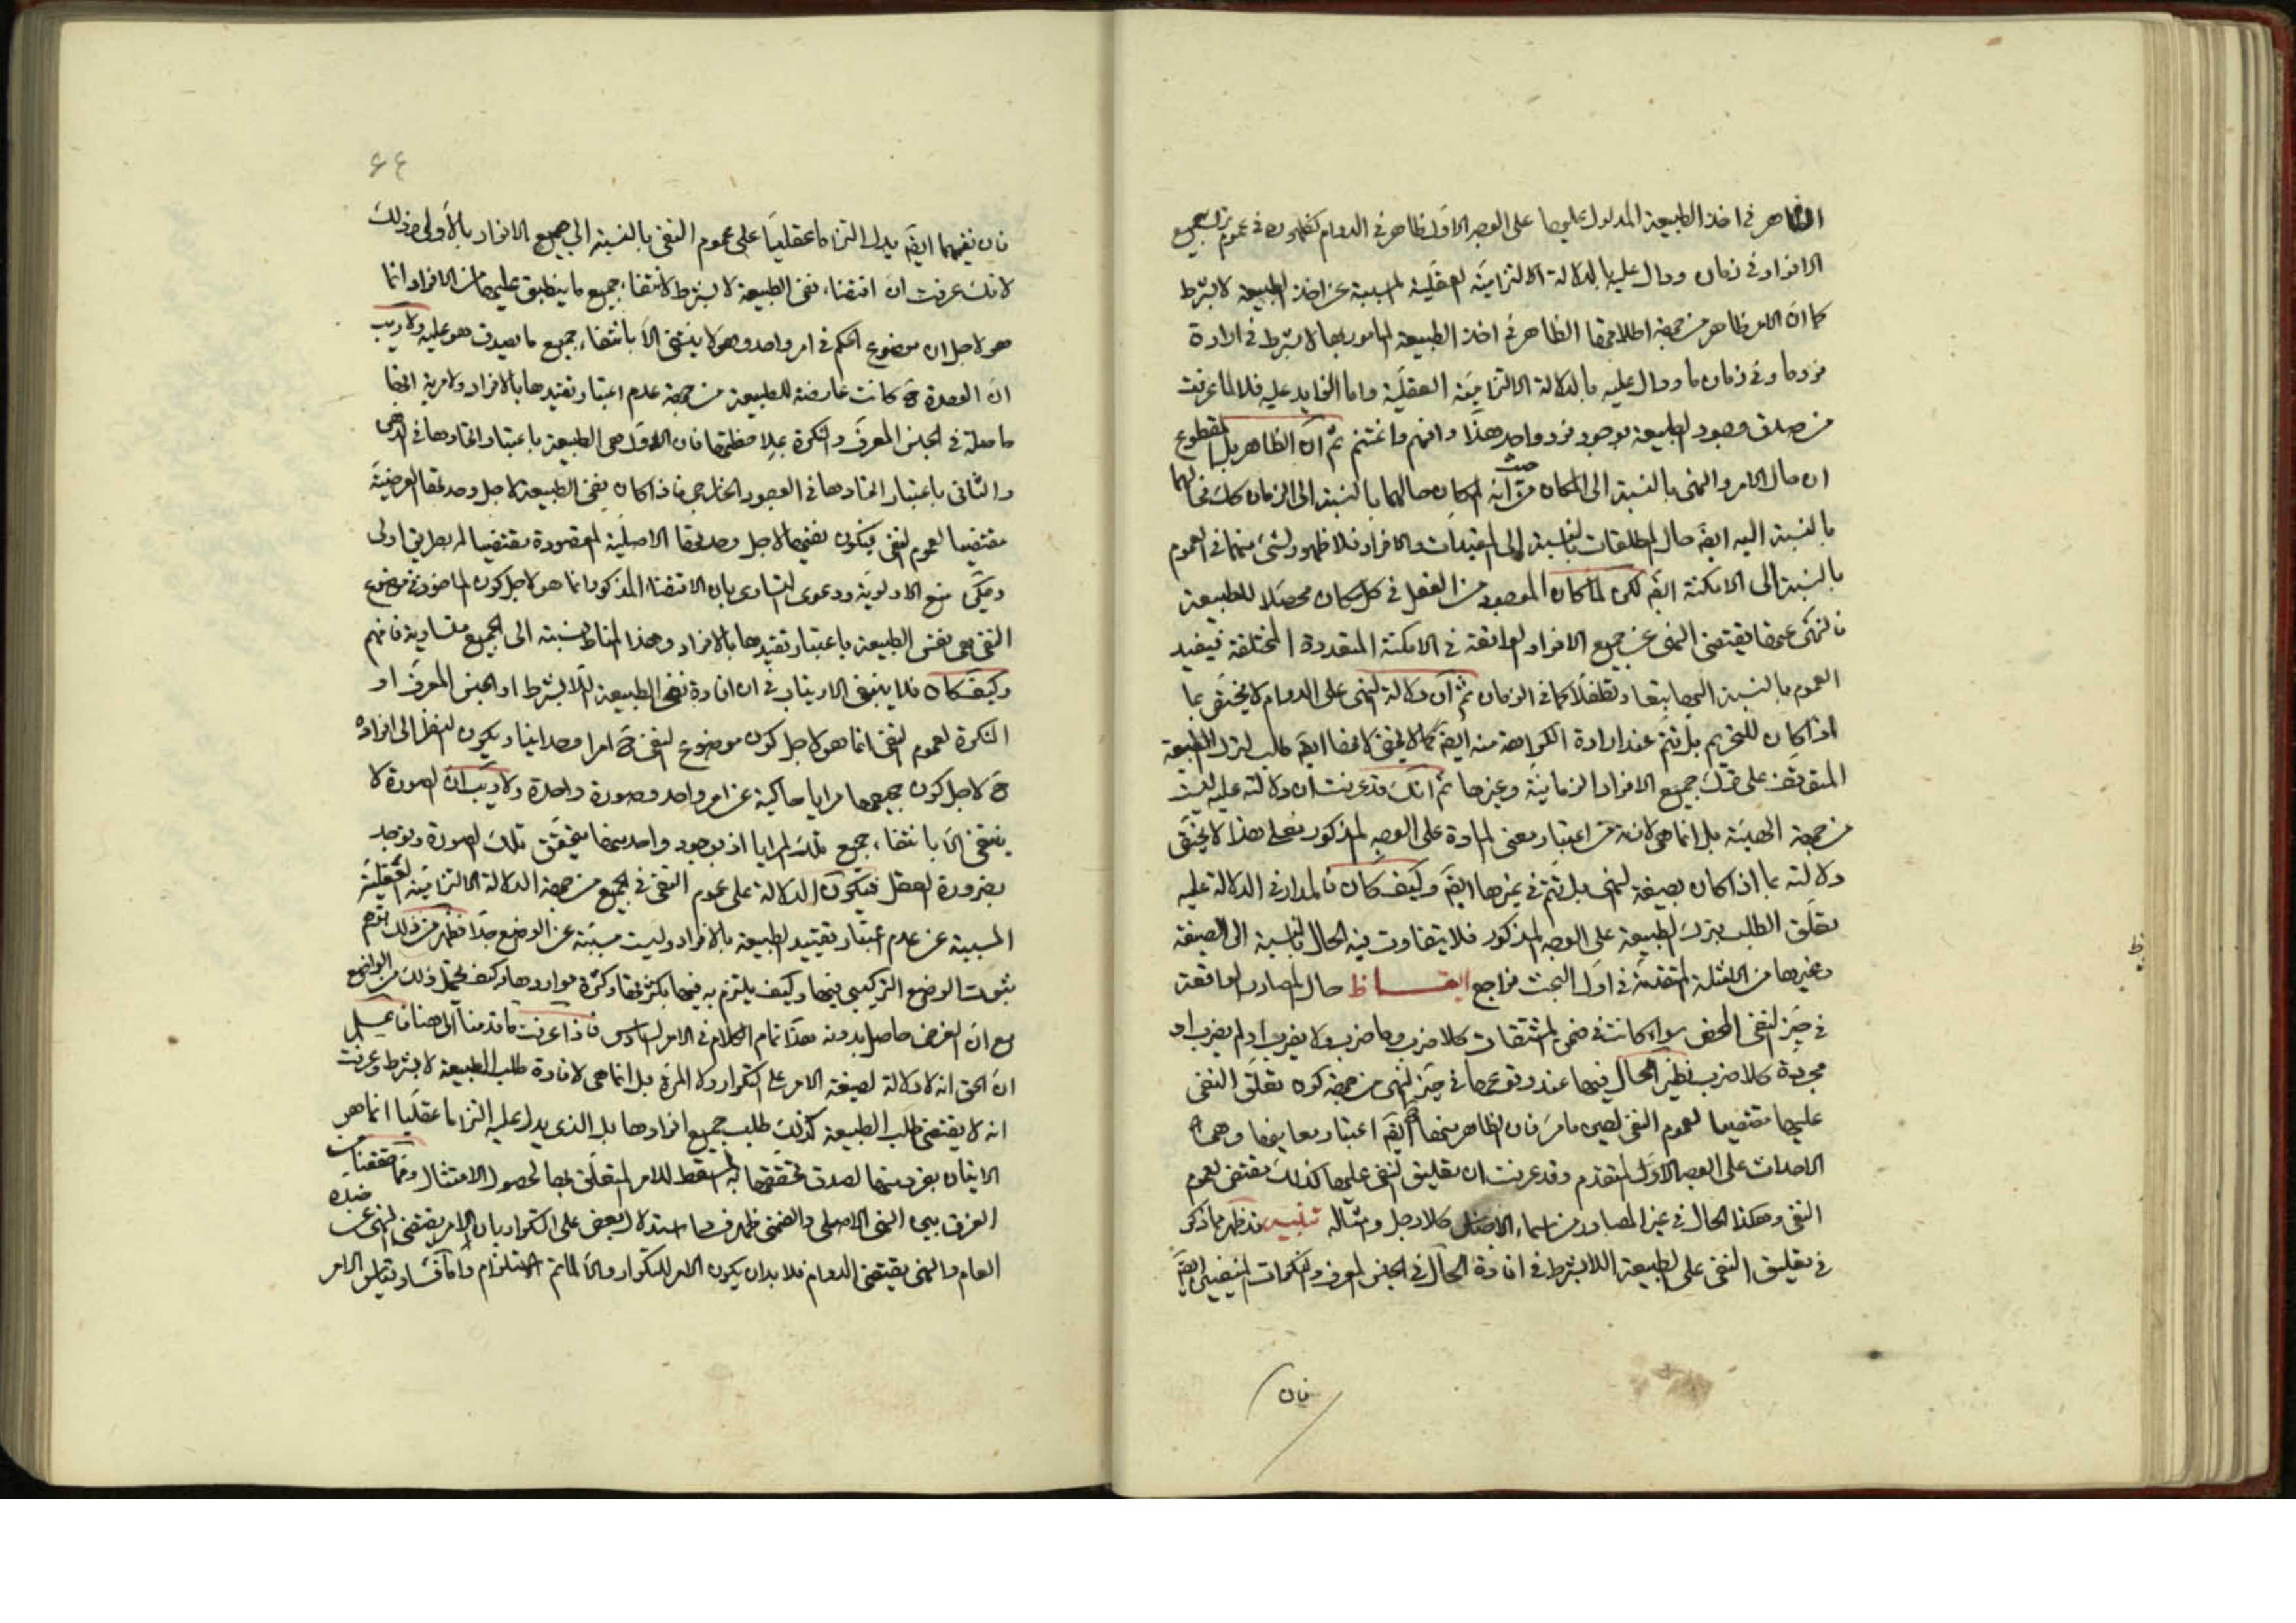 الظاهر في اخذ الطبيعة المدلول عليها على الوجه الاول ظاهر في الدوام كظهوره في عموم ترك جميع
الافراد في زمان ودال عليها بالدلالة الالتزامية العقلية المسببة عن اخذ الطبيعة لا بشرط
كما ان الامر ظاهر من جهة اطلاقها الظاهر في اخذ الطبيعة المامور بها لا بشرط في ارادة
فرد ما وفي زمان ما ودال عليه بالدلالة الالتزامية العقلية واما الزايد عليه فلا لما عرفت
من صدق وجود الطبيعة بوجود فرد واحد هذا وافهم واغتنم ثم ان الظاهر بل المقطوع
ان حال الامر والنهي بالنسبة الى المكان من حيث انه مكان حالهما بالنسبة الى الزمان كك فحالهما
بالنسبة اليه ايضا حال المطلقات بالنسبة الى المقيدات والافراد فلا ظهور لشئ منهما في العموم
بالنسبة الى الامكنة ايضا لكن لما كان الموجود من الفعل في كل مكان محصلا للطبيعة
فالنهي عنها يقتضي النهي عن جميع الافراد الواقعة في الامكنة المتعددة المختلفة فيفيد
العموم بالنسبة اليها تبعا وتطفلا كما في الزمان ثم ان دلالة النهي على الدوام لا يختص بما
اذا كان للتحريم بل يتم عند ارادة الكراهة منه ايضا كما لا يخفى لانها ايضا طلب لترك الطبيعة
المتوقف على ترك جميع الافراد الزمانية وغيرها ثم انك قد عرفت ان دلالته عليه ليست
من جهة الهيئة بل انما هي لانه من اعتبار معنى المادة على الوجه المذكور فعلى هذا لا يختص
دلالته بما اذا كان بصيغة النهي بل يتم في غيرها ايضا وكيف كان فالمدار في الدلالة عليه
تعلق الطلب بترك الطبيعة على الوجه المذكور فلا يتفاوت فيه الحال بالنسبة الى الصيغة
وغيرها من الامثلة المتقدمة في اول البحث فراجع ايقاظ حال المصادر الواقعة
في حيز النفي المحض سواء كانت في ضمن المشتقات كلا ضرب وما ضرب ولا يضرب او لم يضرب او
مجردة كلا ضرب نظير الحال فيها عند وقوعها في حيز النهي من جهة كون تعلق النفي
عليها مقتضيا لعموم النفي لعين ما مر فان الظاهر منها ح ايضا اعتبار معانيها وهي
الاحداث على الوجه الاول المتقدم وقد عرفت ان تعليق النفي عليها كذلك يقتضي لعموم
النفي وهكذا الحال في غير المصادر من اسماء الاجناس كلا رجل وامثاله تنبيه قد ظهر مما ذكر
في تعليق النفي على الطبيعة اللابشرط في افادة الحال في الجنس المعرف والنكرات المنفيين ايضا
فان
۶۴
فان نفيهما ايضا يدل التزاما عقليا على عموم النفي بالنسبة الى جميع الافراد بالاولى وذلك
لانك عرفت ان اقتضاء نفي الطبيعة لا بشرط لانتفاء جميع ما ينطبق عليها من الافراد انما
هو لاجل ان موضوع الحكم في امر واحد وهو لا ينتفي الا بانتفاء جميع ما يصدق هو عليه ولا ريب
ان الوحدة ح كانت عارضة للطبيعة من جهة عدم اعتبار تقيدها بالافراد ولا مرية انها
حاصلة في الجنس المعرف والنكرة بملاحظتها فان الاول هي الطبيعة باعتبار اتحادها في الذهن
والثاني باعتبار اتحادها في الوجود الخارجي فاذا كان نفي الطبيعة لاجل وحدتها العرضية
مقتضيا لعموم النفي فيكون نفيهما لاجل وحدتها الاصلية المقصودة مقتضيا له بطريق اولى
ويمكن منع الاولوية ودعوى التساوي بان الاقتضاء المذكور انما هو لاجل كون الماخوذ في موضوع
النفي هي نفس الطبيعة باعتبار تقيدها بالافراد وهذا المناط نسبته الى الجميع متساوية فافهم
وكيف كان فلا ينبغي الارتياب في ان افادة نفي الطبيعة اللابشرط او الجنس المعرف او
النكرة لعموم النفي انما هو لاجل كون موضوع النفي ح امرا وحدانيا ويكون النظر الى افراده
ح لاجل كون جميعها مرايا حاكية عن امر واحد وصورة واحدة ولا ريب ان الصورة لا
ينتفي الا بانتفاء جميع تلك المرايا اذ بوجود واحد منها يتحقق تلك الصورة ويوجد
بضرورة العقل فيكون الدلالة على عموم النفي في الجميع من جهة الدلالة الالتزامية العقلية
المسببة عن عدم اعتبار تقييد الطبيعة بالافراد وليست مسببة عن الوضع جدا فظهر من ذلك توهم
ثبوت الوضع التركيبي فيها وكيف يلتزم به فيها بكثرتها وكثرة مواردها وكيف يحتمل ذلك من الواضع
مع ان الغرض حاصل بدونه هذا تمام الكلام في الامر السادس فاذا عرفت ما قدمنا الى هنا فاعلم
ان الحق انه لا دلالة لصيغة الامر على التكرار ولا المرة بل انما هي لافادة طلب الطبيعة لا بشرط وعرفت
انه لا يقتضي طلب الطبيعة كذلك طلب جميع افرادها بل الذي يدل عليه التزاما عقليا انما هو
الاتيان بفرد منها لصدق تحققها به المسقط للامر المتعلق بها لحصول الامتثال ومما حققنا من
الفرق بين النهي الاصلي والضمني ظهر فساد استدلال البعض على التكرار بان الامر يقتضي النهي عن ضده
العام والنهي يقتضي الدوام فلا بد ان يكون الامر للتكرار والا لما تم الاستلزام واما فساد قياس الامر